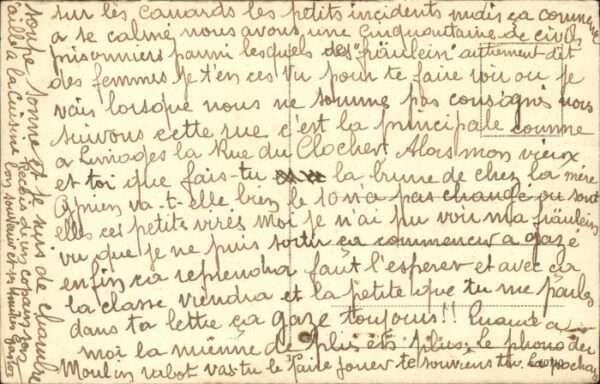 sur les canards les petits incidents mais ça commence
a se calmé nous avons une cinquantaine de civils
prisonniers parmi lesquels des "fräulein" autrement dit
des femmes je t'en ces vu pour te faire voir ou je
vais lorsque nous ne somme pas consignés nous
suivons cette rue c'est la principale comme
a Limoges la Rue du Clocher. Alors mon vieux
et toi que fais-tu la brune de chez la mère
va-t-elle bien le 10 n'a pas changé ou sont
elles ces petits virés Moi je n'ai pu voir ma fräulein
vu que je ne puis sortir ça commencer a gaze
enfin ça reprendra faut l'esperer et avec ça
la classe viendra et la petite que tu me parles
dans ta lettre ça gaze toujours!! Quand a
moi la mienne de plus en plus; le phono du
Moulin vas-tu le faire jouer te souviens tu. La prochai
soupe sonne et je suis de chambre
aille a la cuisine Reçois d'un copain son
bon souvenir et